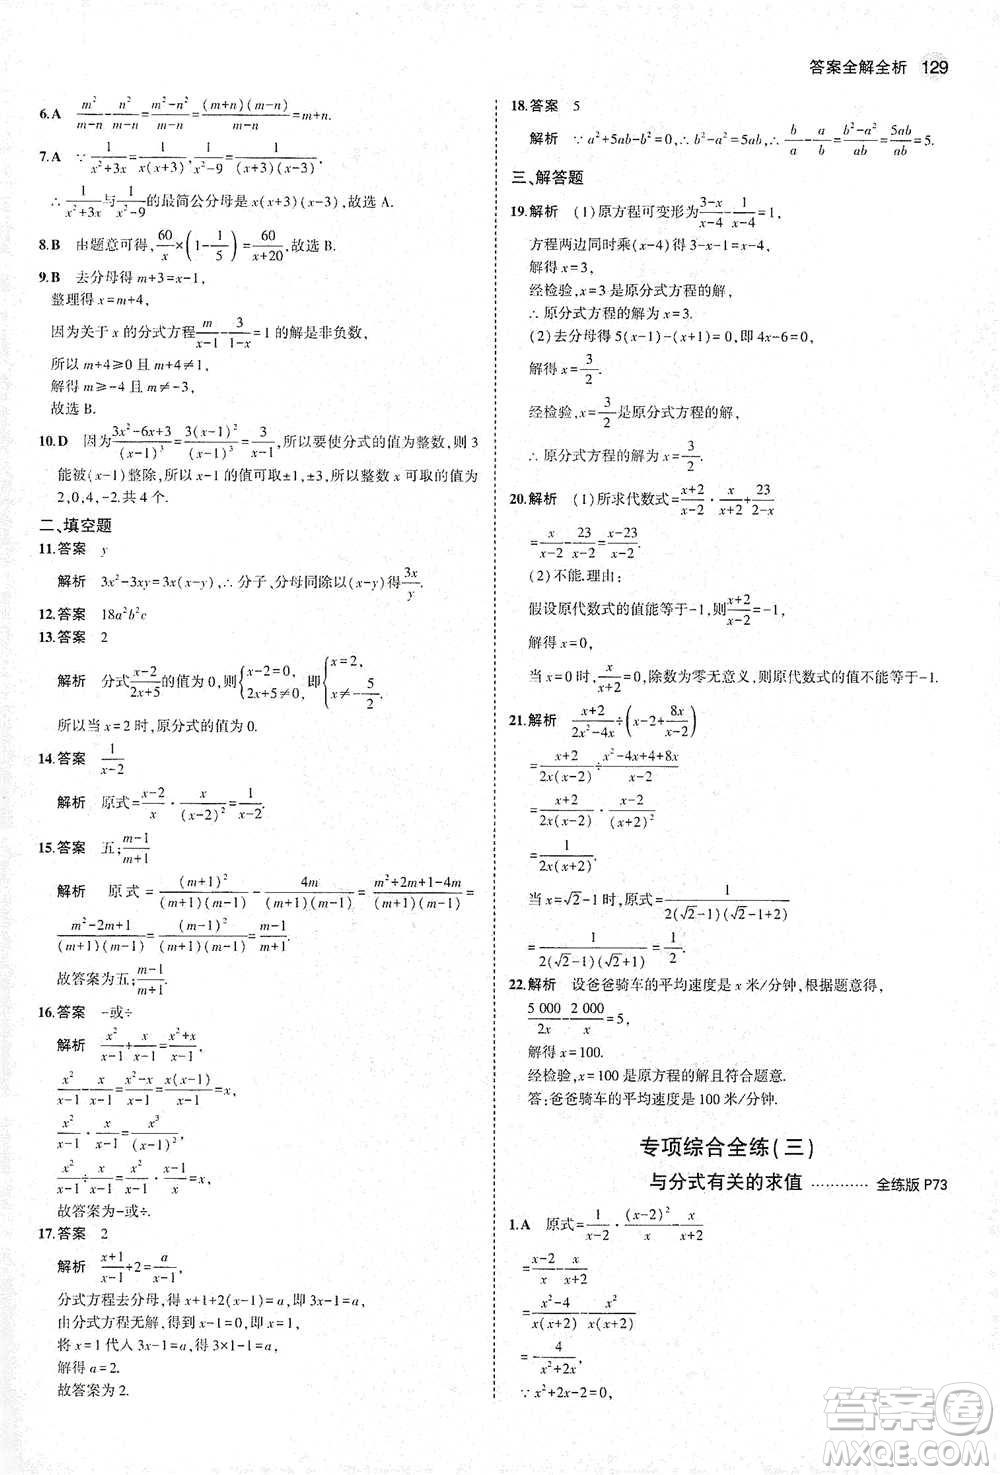 答案全解全析 129
6.A m²/(m-n) - n²/(m-n) = (m²-n²)/(m-n) = (m+n)(m-n)/(m-n) = m+n.
7.A ∵ 1/(x²+3x) = 1/(x(x+3)), 1/(x²-9) = 1/((x+3)(x-3)),
∴ 1/(x²+3x) 与 1/(x²-9) 的最简公分母是 x(x+3)(x-3),故选 A.
8.B 由题意可得, 60/x × (1-1/5) = 60/(x+20),故选 B.
9.B 去分母得 m+3=x-1,
整理得 x=m+4,
因为关于 x 的分式方程 m/(x-1) - 3/(1-x) = 1 的解是非负数,
所以 m+4≥0 且 m+4≠1,
解得 m≥-4 且 m≠-3,
故选 B.
10.D 因为 (3x²-6x+3)/(x-1)³ = 3(x-1)²/(x-1)³ = 3/(x-1),所以要使分式的值为整数,则 3
能被(x-1)整除,所以 x-1 的值可取±1,±3,所以整数 x 可取的值为
2,0,4,-2.共 4 个.
二、填空题
11.答案 y
解析 3x²-3xy=3x(x-y),∴ 分子、分母同除以(x-y)得 3x/y.
12.答案 18a²b²c
13.答案 2
解析 分式 (x-2)/(2x+5) 的值为 0,则 {x-2=0, 2x+5≠0, 即 {x=2, x≠-5/2.
所以当 x=2 时,原分式的值为 0.
14.答案 1/(x-2)
解析 原式= (x-2)/x · x/(x-2)² = 1/(x-2).
15.答案 五; (m-1)/(m+1)
解析 原式= (m+1)²/((m+1)(m-1)) - 4m/((m+1)(m-1)) = (m²+2m+1-4m)/((m+1)(m-1)) =
(m²-2m+1)/((m+1)(m-1)) = (m-1)²/((m+1)(m-1)) = (m-1)/(m+1).
故答案为五; (m-1)/(m+1).
16.答案 -或÷
解析 x²/(x-1) + x/(x-1) = (x²+x)/(x-1),
x²/(x-1) - x/(x-1) = (x²-x)/(x-1) = x(x-1)/(x-1) = x,
x²/(x-1) · x/(x-1) = x³/(x-1)²,
x²/(x-1) ÷ x/(x-1) = x.
故答案为-或÷.
17.答案 2
解析 (x+1)/(x-1) + 2 = a/(x-1),
分式方程去分母,得 x+1+2(x-1)=a,即 3x-1=a,
由分式方程无解,得到 x-1=0,即 x=1,
将 x=1 代入 3x-1=a,得 3×1-1=a,
解得 a=2.
故答案为 2.
18.答案 5
解析 ∵ a²+5ab-b²=0,∴ b²-a²=5ab,∴ b/a - a/b = (b²-a²)/ab = 5ab/ab = 5.
三、解答题
19.解析 (1)原方程可变形为 (3-x)/(x-4) - 1/(x-4) = 1,
方程两边同时乘(x-4)得 3-x-1=x-4,
解得 x=3,
经检验,x=3 是原分式方程的解,
∴ 原分式方程的解为 x=3.
(2)去分母得 5(x-1)-(x+1)=0,即 4x-6=0,
解得 x= 3/2.
经检验,x= 3/2 是原分式方程的解.
∴ 原分式方程的解为 x= 3/2.
20.解析 (1)所求代数式= (x+2)/(x-2) · x/(x+2) + 23/(2-x)
= x/(x-2) - 23/(x-2) = (x-23)/(x-2).
(2)不能.理由:
假设原代数式的值能等于-1,则 (x+2)/(x-2) = -1,
解得 x=0,
当 x=0 时, x/(x+2) = 0,除数为零无意义,则原代数式的值不能等于-1.
21.解析 (x+2)/(2x²-4x) ÷ (x-2+ 8x/(x-2))
= (x+2)/(2x(x-2)) ÷ (x²-4x+4+8x)/(x-2)
= (x+2)/(2x(x-2)) · (x-2)/(x+2)²
= 1/(2x(x+2)).
当 x=√2-1 时,原式= 1/(2(√2-1)(√2-1+2))
= 1/(2(√2-1)(√2+1)) = 1/2.
22.解析 设爸爸骑车的平均速度是 x 米/分钟,根据题意得,
5 000/2x - 2 000/x = 5,
解得 x=100.
经检验,x=100 是原方程的解且符合题意.
答:爸爸骑车的平均速度是 100 米/分钟.
专项综合全练(三)
与分式有关的求值 ………… 全练版 P73
1.A 原式= 1/(x-2) · (x-2)²/x - x/(x+2)
= (x-2)/x - x/(x+2)
= (x²-4-x²)/(x(x+2))
= -4/(x²+2x).
∵ x²+2x-2=0,
答案圈
MXQE.COM